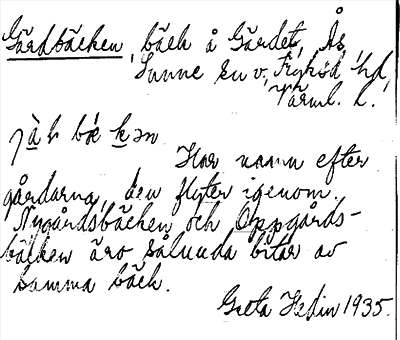 Gärdbäcken, bäck å Gärdet, Ås,
Sunne sn v., Fryksd. hd,
Värml. l.
Har namn efter
gårdarna, den flyter igenom.
Nygårdsbäcken och Oppgårds-
bäcken äro sålunda bitar av
samma bäck.
Greta Hedin 1935.